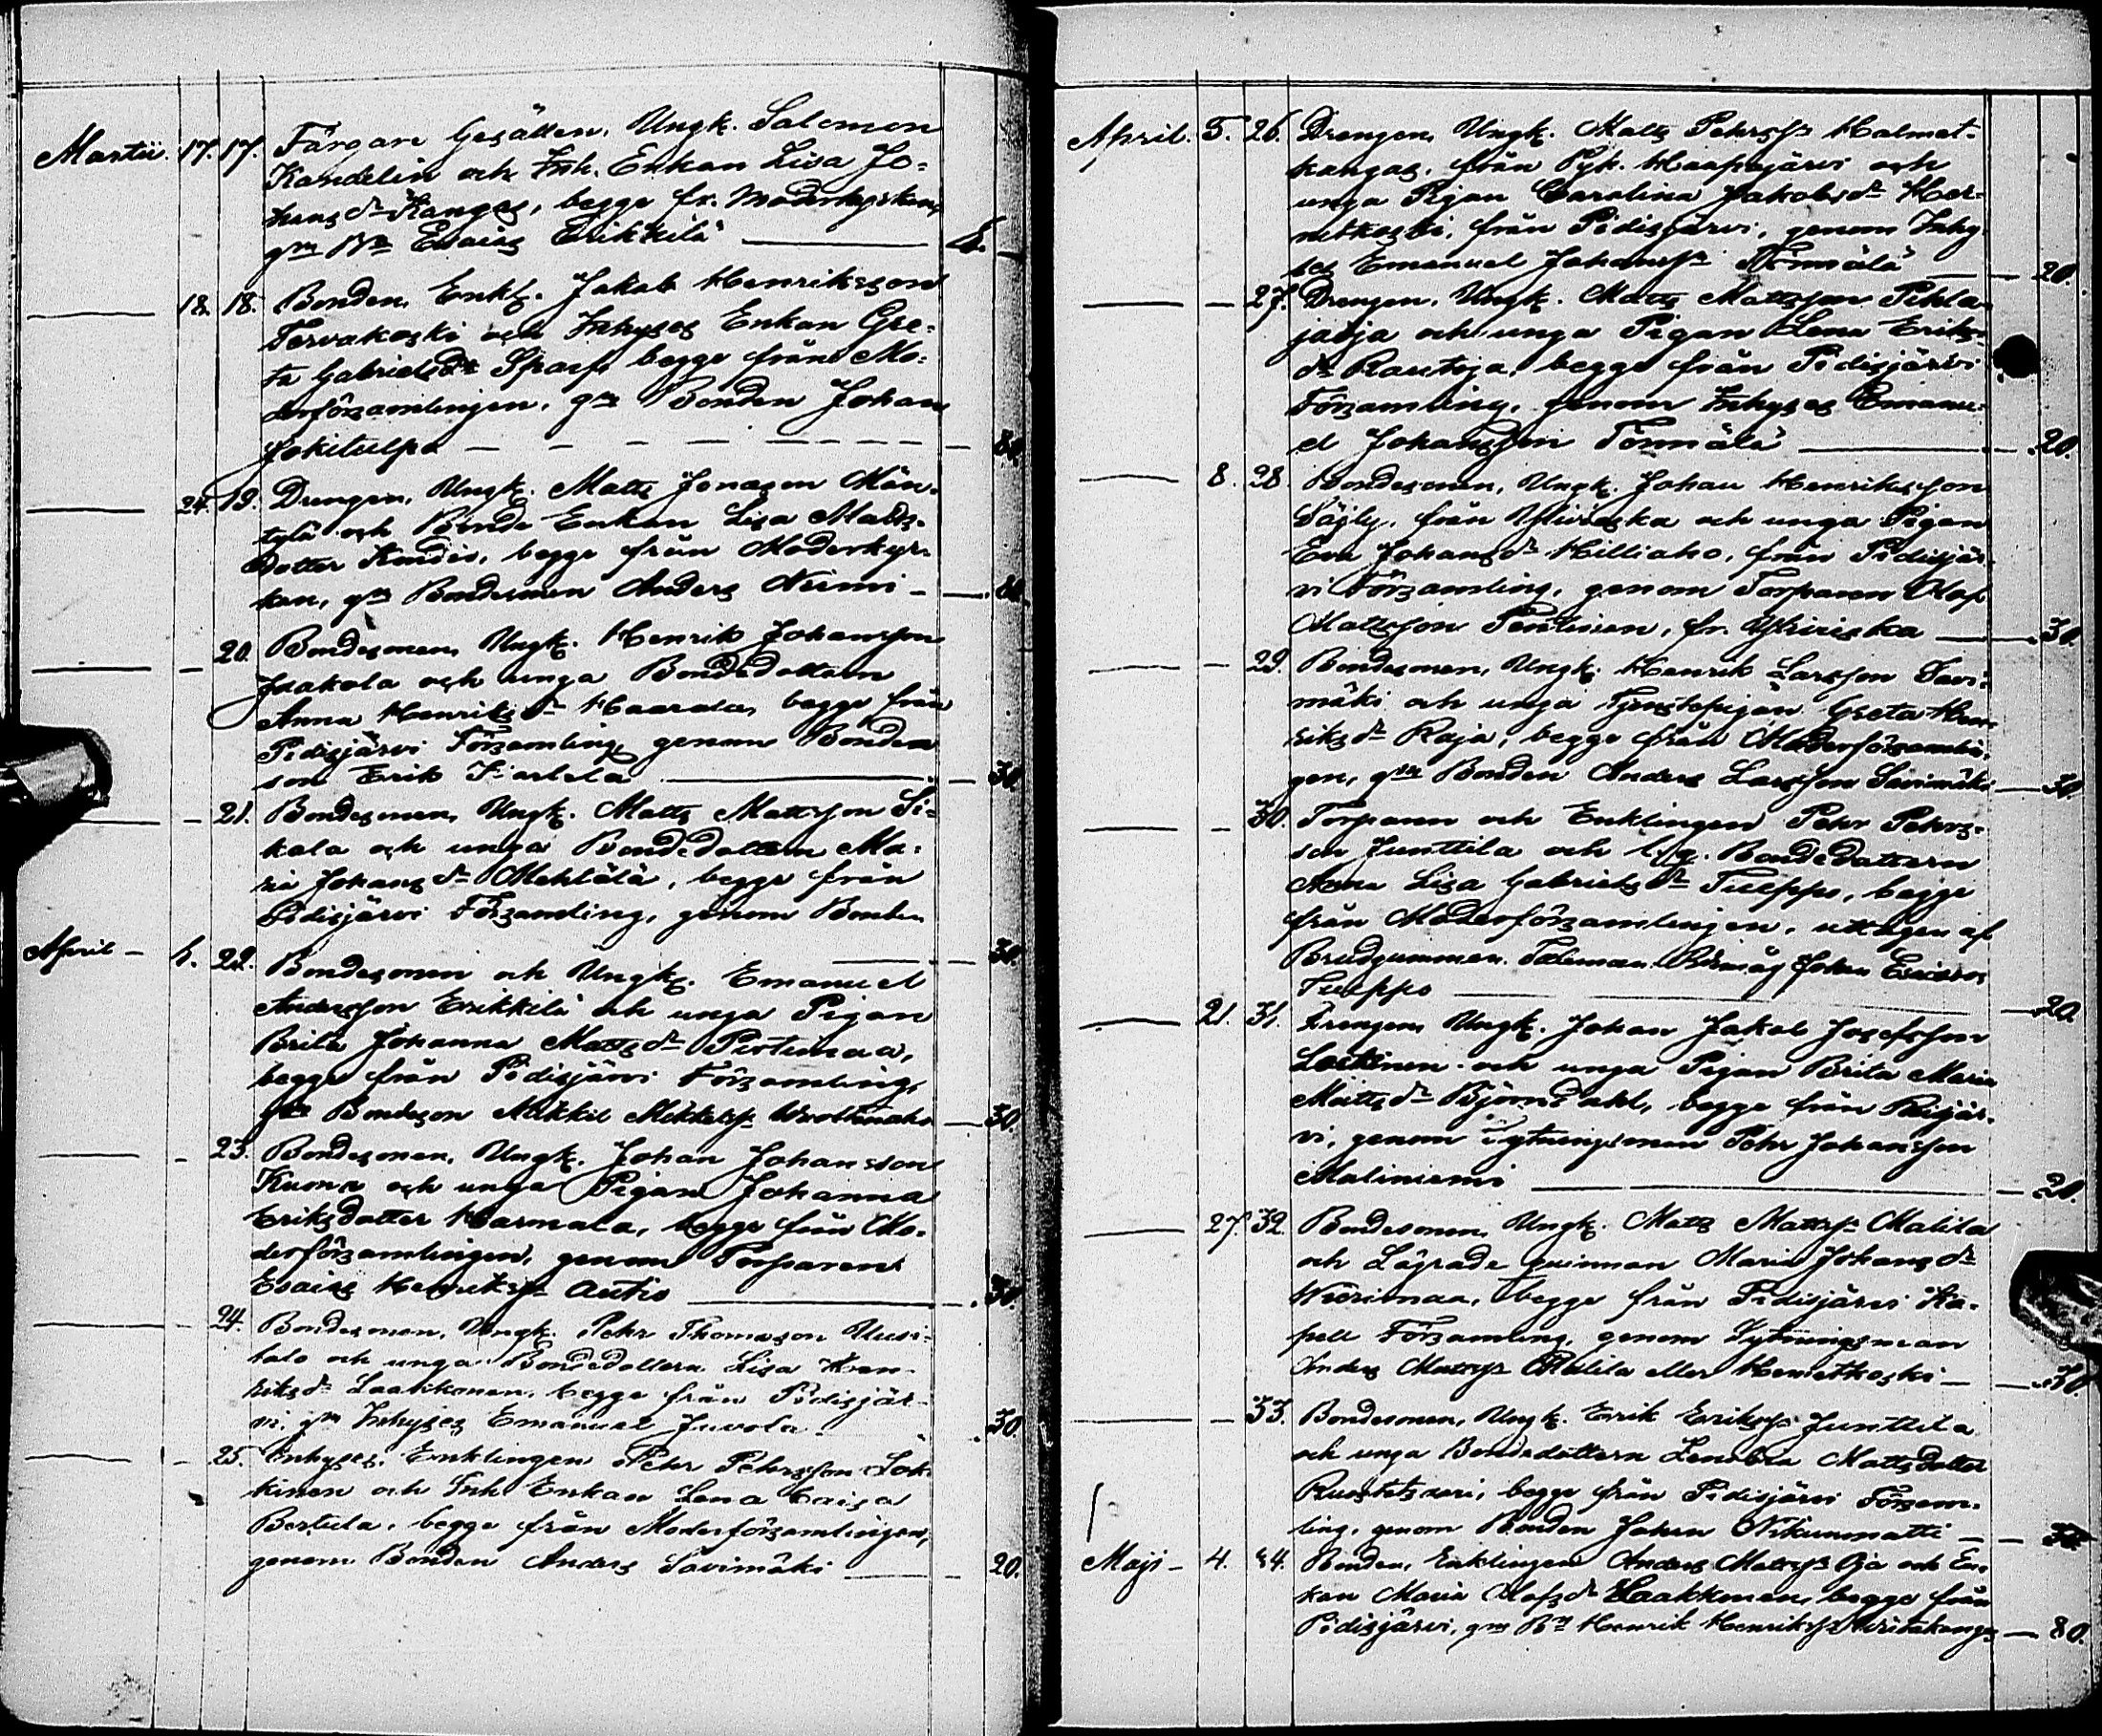 Martii. 17. 17. Färgare Gesällen, Ungk. Salomon
Kandelin och Inh. Enkan Lisa Jo=
hans dr Kangas, begge fr. Moderkyrkan,
gm Bn Esaias Erikkilä
18. 18. Bonden, Enkl. Jakob Henriksson
Tervakoski och Inhyses Enkan Gre=
ta Gabrielsdr Sparf, begge från Mo=
derförsamlingen, gm Bonden Johan
Jokitulppo 80.
24. 19. Drengen, Ungk. Matts Jonasson Män-
tylä och Bonde Enkan Lisa Matts-
dotter begge från Moderkyr-
kan, gm Bondesonen Anders Niemi
20. Bondesonen, Ungk. Henrik Johansson
Jaakola och unga Bondedottern
Anna Henriks dr begge från
Pidisjärvi Församling, genom Bonde
son Erik 30.
21. Bondesonen, Ungk. Matts Mattsson
och unga Bondedottern Ma=
ria Johans dr Mehtälä, begge från
Pidisjärvi Församling, genom Bonden
30.
April - 22. Bondesonen och Ungk. Emanuel
Andersson Erikkilä och unga Pigan
Brita Johanna Matts dr Pirtimaa,
begge från Pidisjärvi Församling,
gm Bondeson Mikkel 30.
23. Bondesonen, Ungk. Johan Johansson
Kuona och unga Pigan Johanna
Eriksdotter Harmala, begge från Mo-
derförsamlingen, genom Torparen
Esaias Henrikss. Autio 30.
24. Bondesonen, Ungk. Pehr Thomasson Uusi-
talo och unga Bondedottern Lisa Hen-
riks dr Laakkonen, begge från Pidisjär-
vi, gm Inhyses Emanuel Juvola 30.
25. Inhyses, Enklingen Pehr Pehrsson Lok-
kinen och Inh. Enkan Lena Caisa
Bertula, begge från Moderförsamlingen,
genom Bonden Anders Savimäki 20.
April. 5. 26. Drengen, Ungk. Matts Pehrss. Halmet-
kangas, från Pyh. Haapajärvi och
unga Pigan Carolina Jakobs dr Her-
netkoski, från Pidisjärvi, genom Inhy-
ses Emanuel Johanss. Törmälä 20.
27. Drengen, Ungk. Matts Mattsson Pihla-
jaoja och unga Pigan Lena Eriks-
dr Rautoja, begge från Pidisjärvi
Församling, genom Inhyses Emanu-
el Johansson Törmälä 20.
8. 28. Bondesonen, Ungk. Johan Henriksson
från Ylivieska och unga Pigan
Eva Johans dr Hilliaho, från Pidisjär-
vi Församling, genom Torparen Olof
Mattsson Pentinen, fr. Ylivieska 30.
29. Bondesonen, Ungk. Henrik Larsson Savi-
mäki och unga Tjenstepigan Greta Hen-
riks dr Raja, begge från Moderförsamlin-
gen, gm Bonden Anders Larsson Savimäki 30.
30. Torparen och Enklingen Pehr Pehrs-
son Junttila och Bondedottern
Anna Lisa Gabriels dr Tulppo, begge
från Moderförsamlingen, uttagen af
Brudgummen. Taleman Johan
Tulppo 20.
21. 31. Drengen, Ungk. Johan Jakob Josefsson
och unga Pigan Brita Maria
Matts dr Björndahl, begge från Reisjär-
vi, genom Lytningsman Pehr Johansson
Maliniemi 20.
27. 32. Bondesonen, Ungk. Matts Mattss. Malila
och Lägrade qvinnan Maria Johans dr
begge från Pidisjärvi Ka-
pell Församling, genom Lytningsman
Anders Mattss. Malila eller Hernetkoski 30.
33. Bondesonen, Ungk. Erik Erikss. Junttila
och unga Bondedottern Mattsdotter
begge från Pidisjärvi Försam-
ling, genom Bonden Johan
Maji - 4. 34. Bonden, Enklingen Anders Mattss. Oja och En-
kan Maria Olofs dr Laakkonen, begge från
Pidisjärvi, gm Bn Henrik Henrikss. 80.